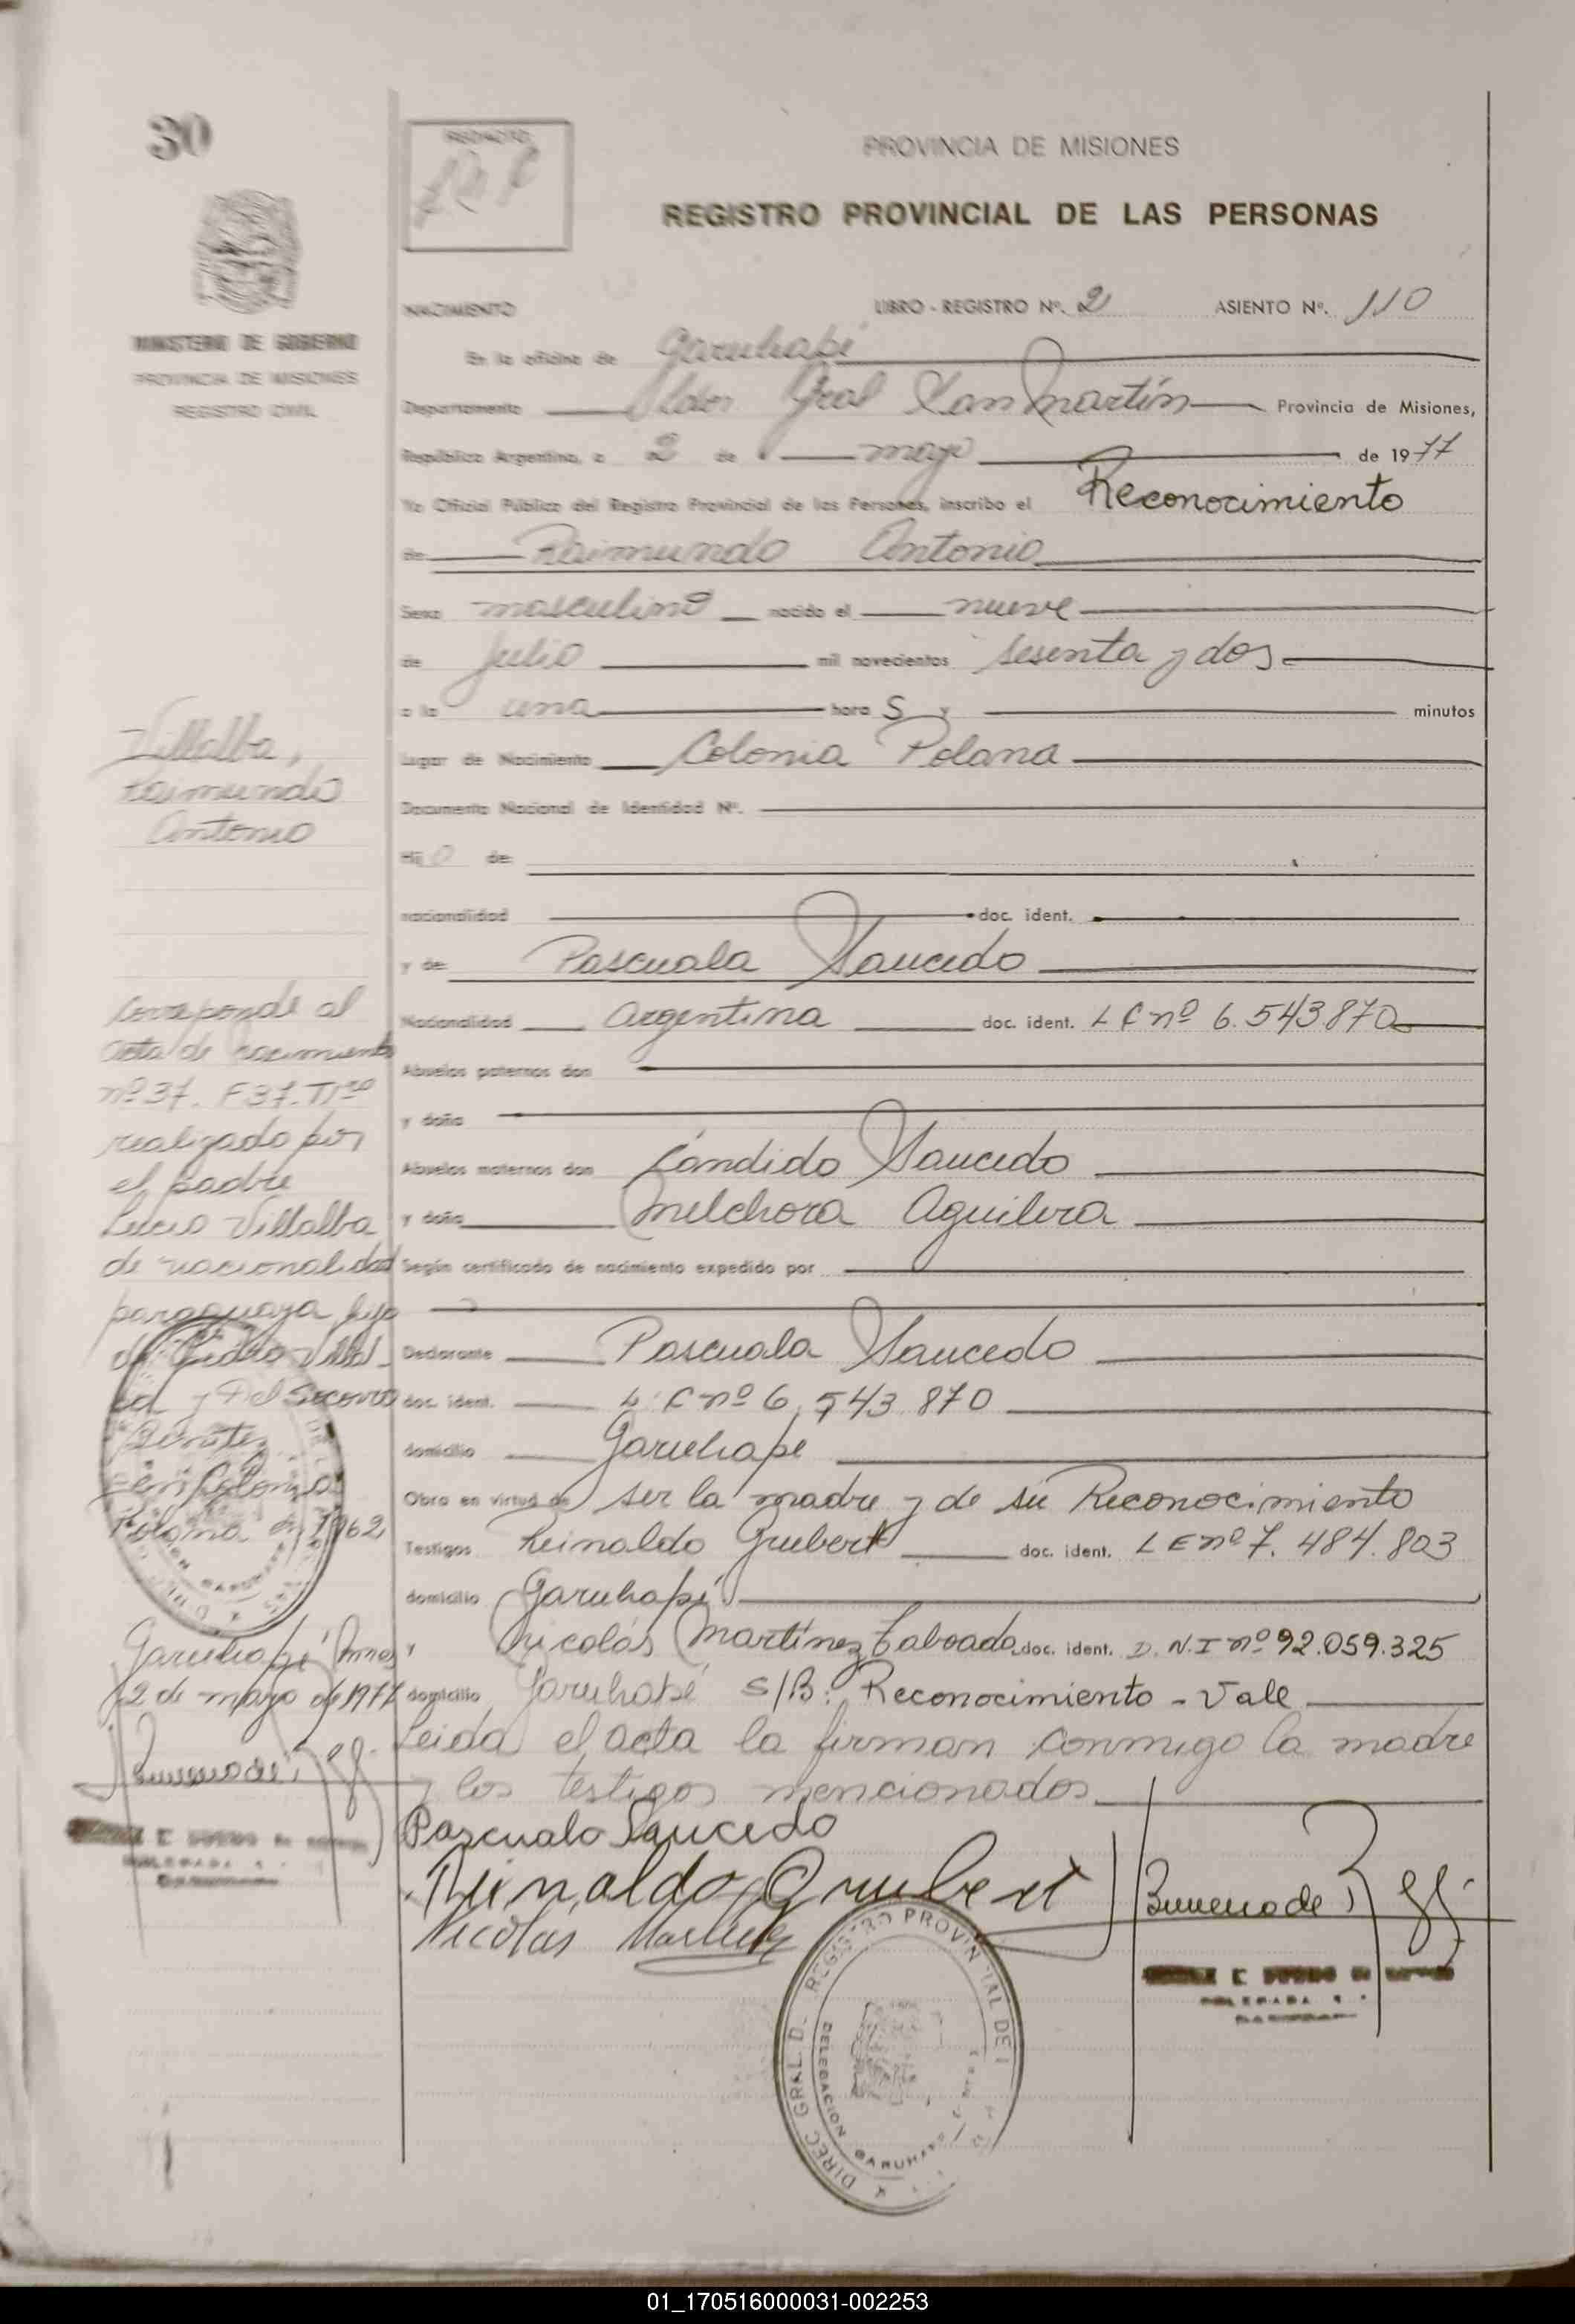 30
PROVINCIA DE MISIONES
REGISTRO PROVINCIAL DE LAS PERSONAS
MINISTERIO DE GOBIERNO
PROVINCIA DE MISIONES
REGISTRO CIVIL
NACIMIENTO LIBRO - REGISTRO Nº. 2 ASIENTO Nº. 110
En la oficina de Garuhapé
Departamento Ldor Gral San Martín Provincia de Misiones,
República Argentina, a 2 de mayo de 1977
Yo Oficial Público del Registro Provincial de las Personas, inscribo el Reconocimiento
de Raimundo Antonio
Sexo masculino nacido el nueve
de Julio mil novecientos sesenta y dos
a la una hora S y minutos
Lugar de Nacimiento Colonia Polana
Documento Nacional de Identidad Nº.
Hijo de:
nacionalidad doc. ident.
y de: Pascuala Saucedo
Nacionalidad Argentina doc. ident. L C nº 6.543870
Abuelos paternos don
y doña
Abuelos maternos don Cándido Saucedo
y doña Melchora Aguilera
Según certificado de nacimiento expedido por
Declarante Pascuala Saucedo
doc. ident. L. C nº 6.543.870
domicilio Garuhapé
Obra en virtud de ser la madre y de su Reconocimiento
Testigos Reinaldo Grubert doc. ident. L E nº 7.484.803
domicilio Garuhapé
y Nicolás Martínez Taboada doc. ident. D.N.I nº 92.059.325
domicilio Garuhapé S/B: Reconocimiento - Vale
Leida el acta la firman conmigo la madre
y los testigos mencionados
Pascuala Saucedo
Reinaldo Grubert
Nicolas Martinez
Villalba,
Raimundo
Antonio
Corresponde al
acta de nacimiento
nº 37. F 37. Tº
realizado por
el padre
Lucio Villalba
de nacionalidad
paraguaya hijo
de Pedro Villal
ba y Del Socorro
Benítez
en Colonia
Polana en 1962
Garuhapé Mnes
2 de mayo de 1977
DIREC. GRAL. D. REGISTRO PROVINCIAL DE L
DELEGACION GARUHAPE
01_170516000031-002253